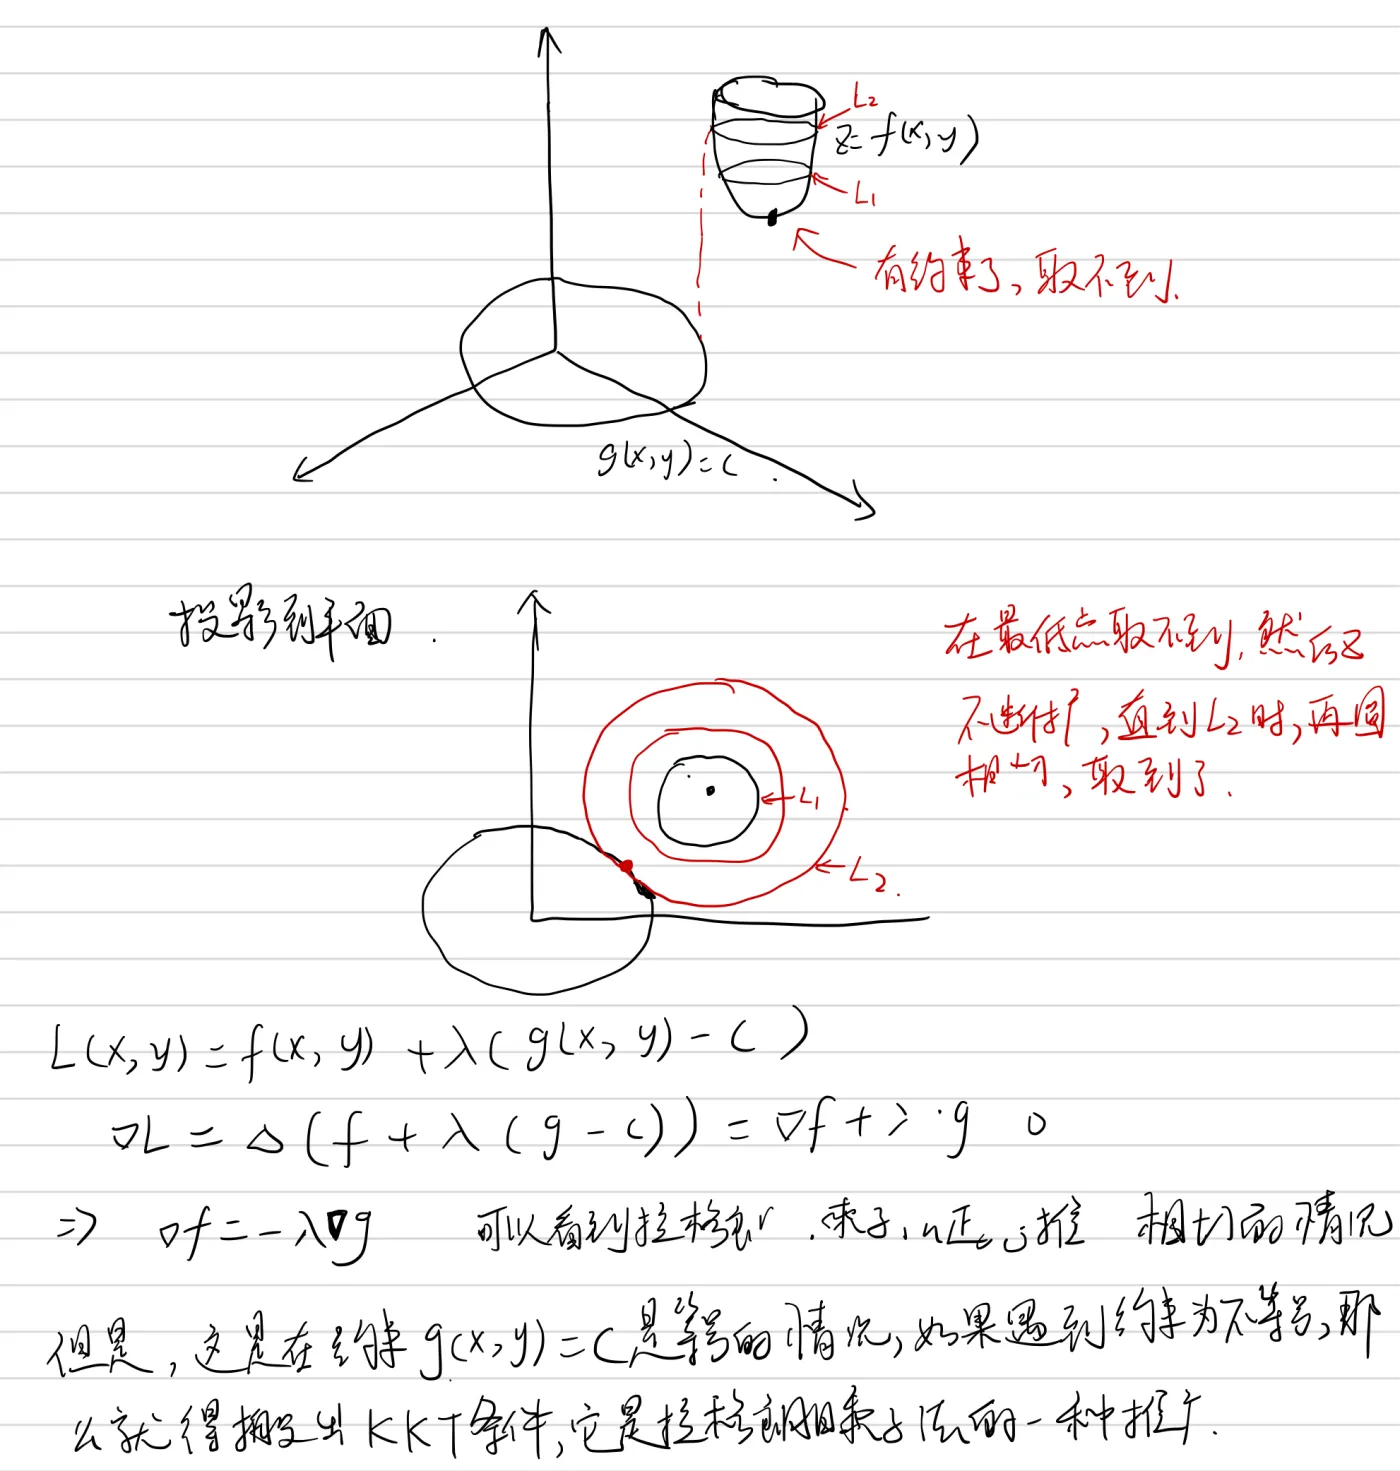 L₂
z=f(x,y)
L₁
有约束了，取不到.
g(x,y)=C
投影到平面.
在最低点取不到，然后
不断扩，直到L₂时，再圆
相切，取到了.
L₁
L₂.
L(x,y)=f(x,y)+λ(g(x,y)-C)
▽L=△(f+λ(g-C))=▽f+λ·g 0
⇒ ▽f=-λ▽g 可以看到拉格 乘子 推 相切的情况
但是，这是在约束g(x,y)=C是等号的情况，如果遇到约束为不等号，那
么就得搬出KKT条件，它是拉格朗日乘子法的一种推广.